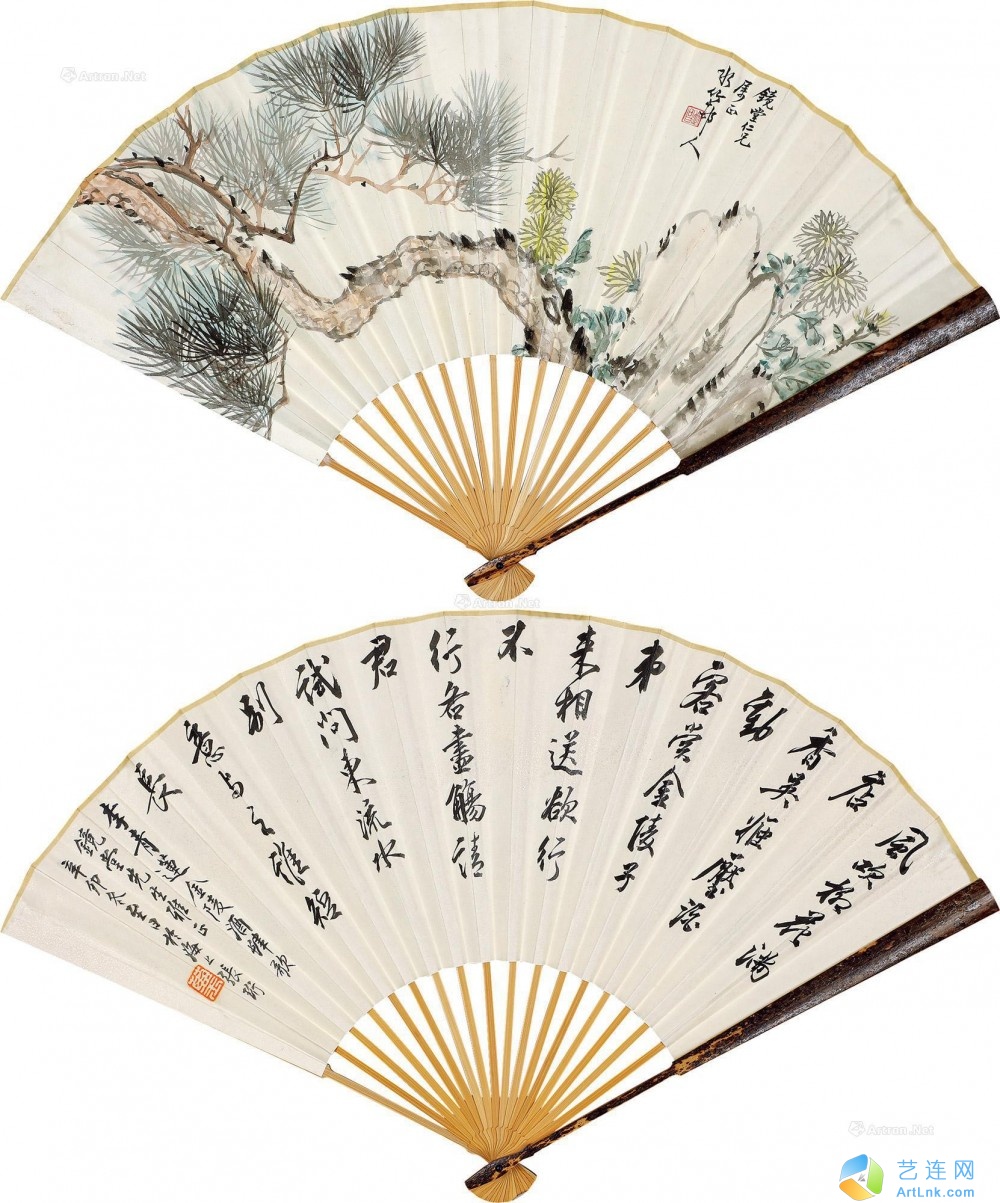 Astron.Net
鏡堂仁兄
屬正
水竹邨人
Astron.Net
風吹柳花滿
店
香吳姬壓酒
勸
客嘗金陵子
弟
來相送欲行
不
行各盡觴請
君
試問東流水
別
意与之誰短
長
李青蓮金陵酒肆歌
鏡堂先生雅正
辛卯冬至日於海上張珩
Astron.Net
艺连网
ArtLnk.com